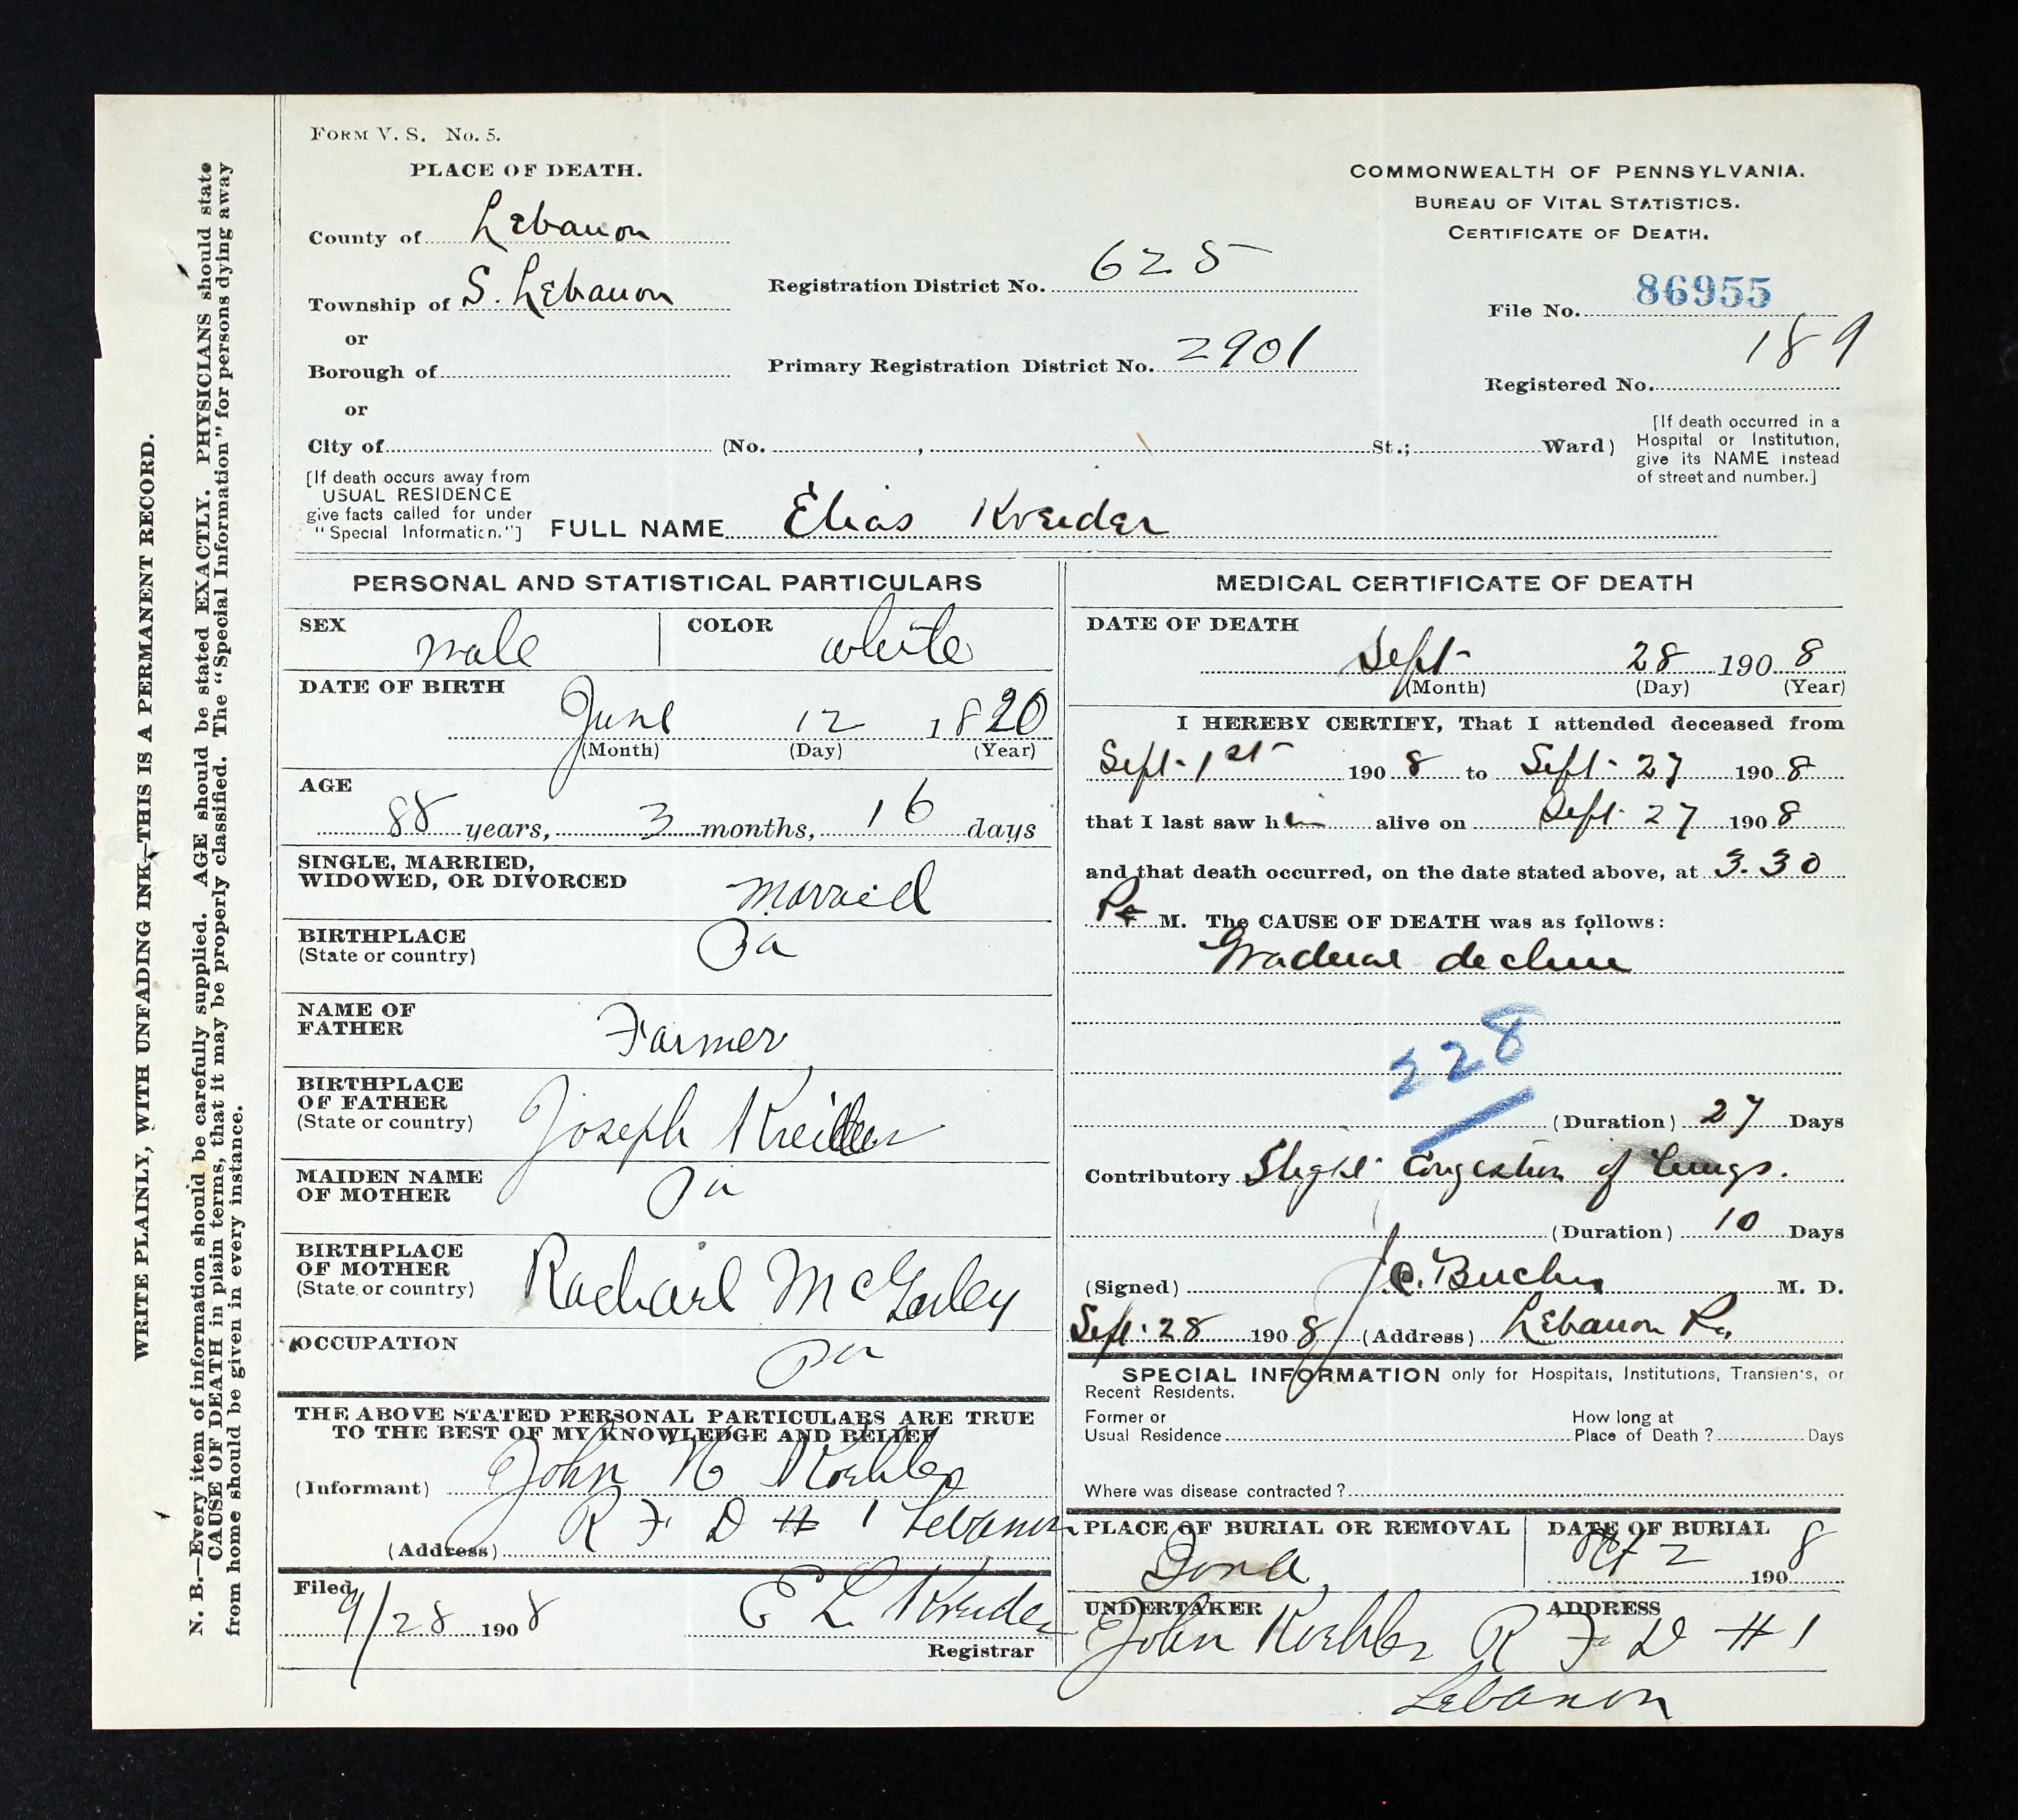 FORM V. S. No. 5.
PLACE OF DEATH.
County of Lebanon
Township of S. Lebanon
or
Borough of
or
City of (No. , St.; Ward)
[If death occurs away from
USUAL RESIDENCE
give facts called for under
"Special Information."]
COMMONWEALTH OF PENNSYLVANIA.
BUREAU OF VITAL STATISTICS.
CERTIFICATE OF DEATH.
Registration District No. 625
Primary Registration District No. 2901
File No. 86955
Registered No. 189
[If death occurred in a
Hospital or Institution,
give its NAME instead
of street and number.]
FULL NAME Elias Kreider
PERSONAL AND STATISTICAL PARTICULARS
SEX male COLOR white
DATE OF BIRTH
June 12 1820
(Month) (Day) (Year)
AGE
88 years, 3 months, 16 days
SINGLE, MARRIED,
WIDOWED, OR DIVORCED married
BIRTHPLACE
(State or country) Pa
NAME OF
FATHER Farmer
BIRTHPLACE
OF FATHER
(State or country) Joseph Kreider
MAIDEN NAME
OF MOTHER Pa
BIRTHPLACE
OF MOTHER
(State or country) Rachael
OCCUPATION Pa
THE ABOVE STATED PERSONAL PARTICULARS ARE TRUE
TO THE BEST OF MY KNOWLEDGE AND BELIEF
(Informant) John Koehler
(Address) R F D # 1 Lebanon
Filed 9/28 1908 E L Kreider
Registrar
MEDICAL CERTIFICATE OF DEATH
DATE OF DEATH
Sept 28 1908
(Month) (Day) (Year)
I HEREBY CERTIFY, That I attended deceased from
Sept. 1st 1908 to Sept. 27 1908
that I last saw him alive on Sept. 27 1908
and that death occurred, on the date stated above, at 3.30
P. M. The CAUSE OF DEATH was as follows:
Gradual decline
228
(Duration) 27 Days
Contributory Slight Congestion of lungs.
(Duration) 10 Days
(Signed) J. C. Bucher M. D.
Sept. 28 1908 (Address) Lebanon Pa.
SPECIAL INFORMATION only for Hospitals, Institutions, Transients, or
Recent Residents.
Former or
Usual Residence
How long at
Place of Death? Days
Where was disease contracted?
PLACE OF BURIAL OR REMOVAL
Iona,
DATE OF BURIAL
Oct 2 1908
UNDERTAKER ADDRESS
John Koehler R F D # 1
Lebanon
WRITE PLAINLY, WITH UNFADING INK—THIS IS A PERMANENT RECORD.
N. B.—Every item of information should be carefully supplied. AGE should be stated EXACTLY. PHYSICIANS should state
CAUSE OF DEATH in plain terms, that it may be properly classified. The "Special Information" for persons dying away
from home should be given in every instance.